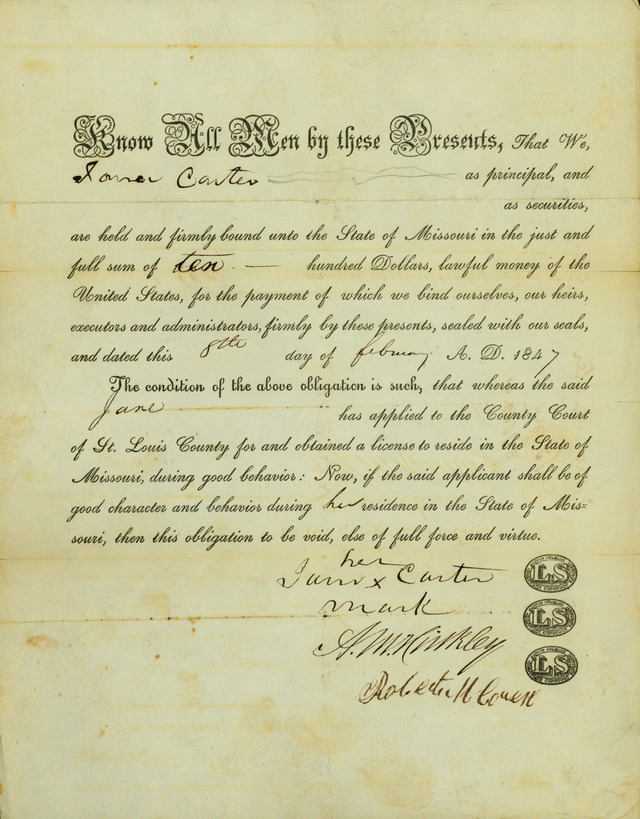 Know All Men by these Presents, That We,
Jane Carter as principal, and
as securities,
are held and firmly bound unto the State of Missouri in the just and
full sum of ten — hundred Dollars, lawful money of the
United States, for the payment of which we bind ourselves, our heirs,
executors and administrators, firmly by these presents, sealed with our seals,
and dated this 8th day of february A. D. 1847
The condition of the above obligation is such, that whereas the said
Jane has applied to the County Court
of St. Louis County for and obtained a license to reside in the State of
Missouri, during good behavior: Now, if the said applicant shall be of
good character and behavior during her residence in the State of Mis=
souri, then this obligation to be void, else of full force and virtue.
her
Jane x Carter LS
mark LS
A. LS
Robert N